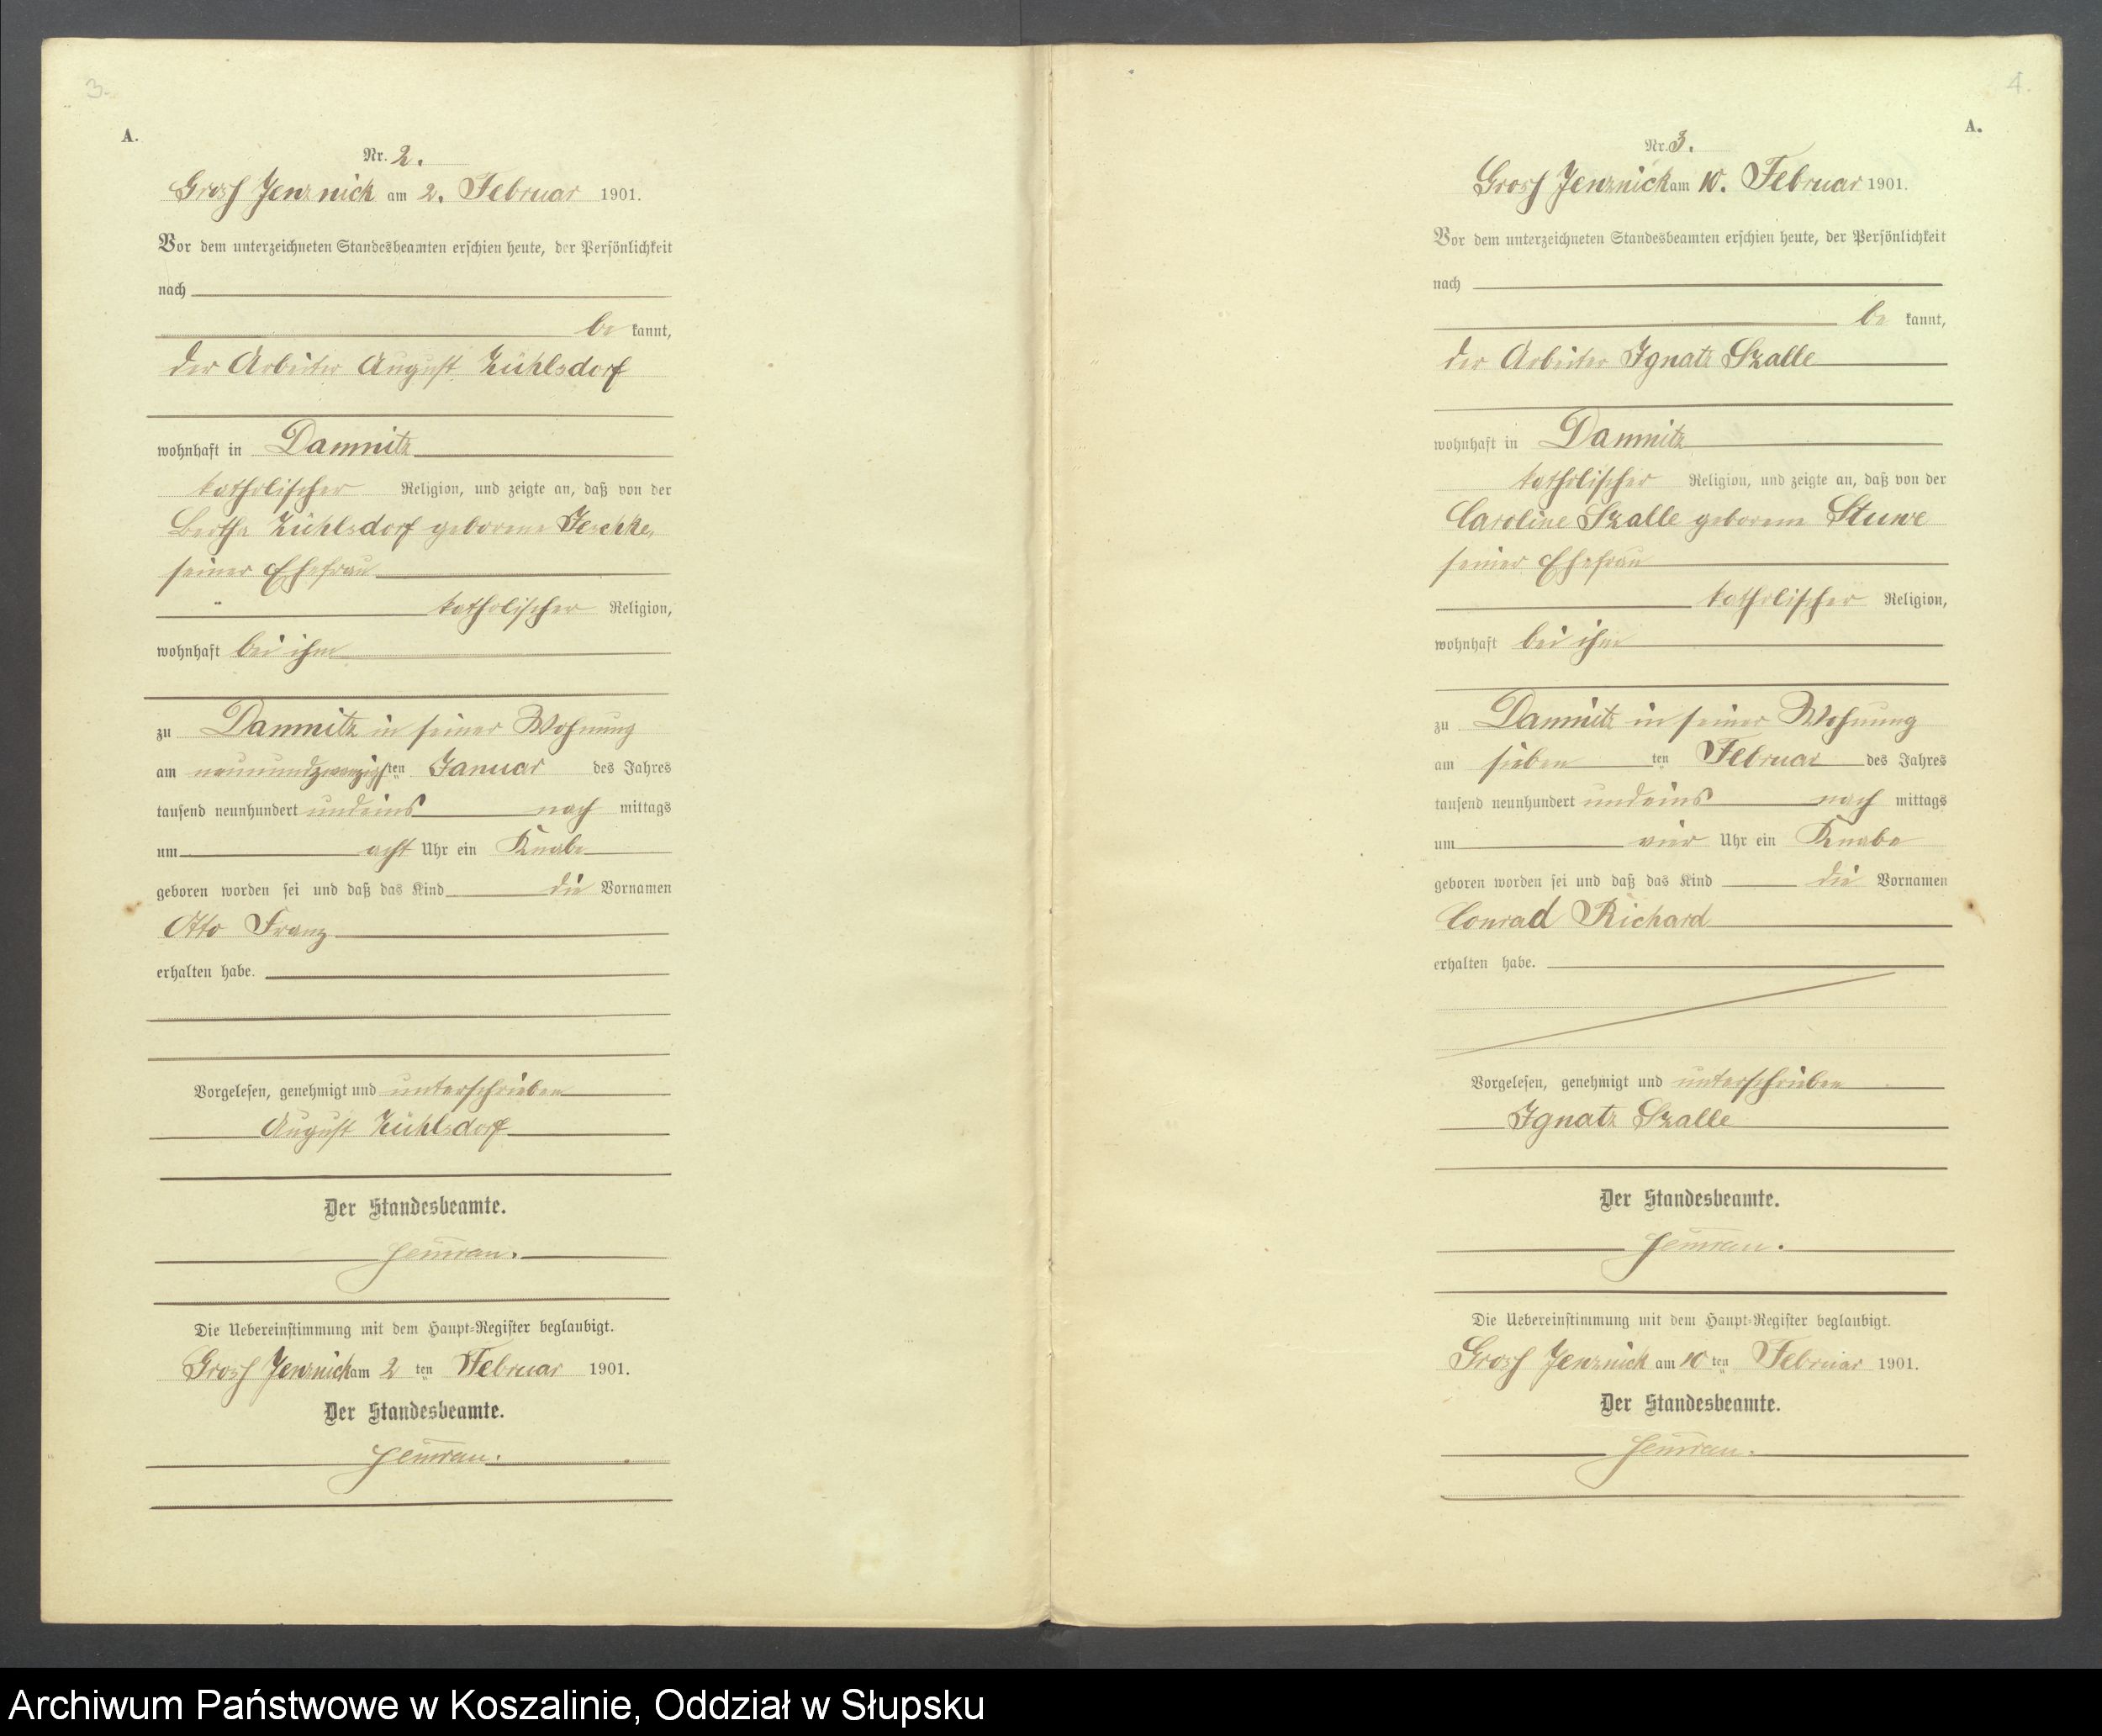 3.
A.
Nr. 2.
Gross Jenznick am 2. Februar 1901.
Vor dem unterzeichneten Standesbeamten erschien heute, der Persönlichkeit
nach
be kannt,
der Arbeiter August Kühlsdorf
wohnhaft in Damnitz
katholischer Religion, und zeigte an, daß von der
Bertha Kühlsdorf geborene Jeschke,
seiner Ehefrau
katholischer Religion,
wohnhaft bei ihm
zu Damnitz in seiner Wohnung
am neunundzwanzigsten Januar des Jahres
tausend neunhundert undeins nach mittags
um acht Uhr ein Knabe
geboren worden sei und daß das Kind die Vornamen
Otto Franz
erhalten habe.
Vorgelesen, genehmigt und unterschrieben
August Kühlsdorf
Der Standesbeamte.
Die Uebereinstimmung mit dem Haupt-Register beglaubigt.
Gross Jenznick am 2 ten Februar 1901.
Der Standesbeamte.
4.
A.
Nr. 3.
Gross Jenznick am 10. Februar 1901.
Vor dem unterzeichneten Standesbeamten erschien heute, der Persönlichkeit
nach
be kannt,
der Arbeiter Ignatz Szalle
wohnhaft in Damnitz
katholischer Religion, und zeigte an, daß von der
Caroline Szalle geborene Stuwe
seiner Ehefrau
katholischer Religion,
wohnhaft bei ihm
zu Damnitz in seiner Wohnung
am sieben ten Februar des Jahres
tausend neunhundert undeins nach mittags
um vier Uhr ein Knabe
geboren worden sei und daß das Kind die Vornamen
Conrad Richard
erhalten habe.
Vorgelesen, genehmigt und unterschrieben
Ignatz Szalle
Der Standesbeamte.
Die Uebereinstimmung mit dem Haupt-Register beglaubigt.
Gross Jenznick am 10 ten Februar 1901.
Der Standesbeamte.
Archiwum Państwowe w Koszalinie, Oddział w Słupsku